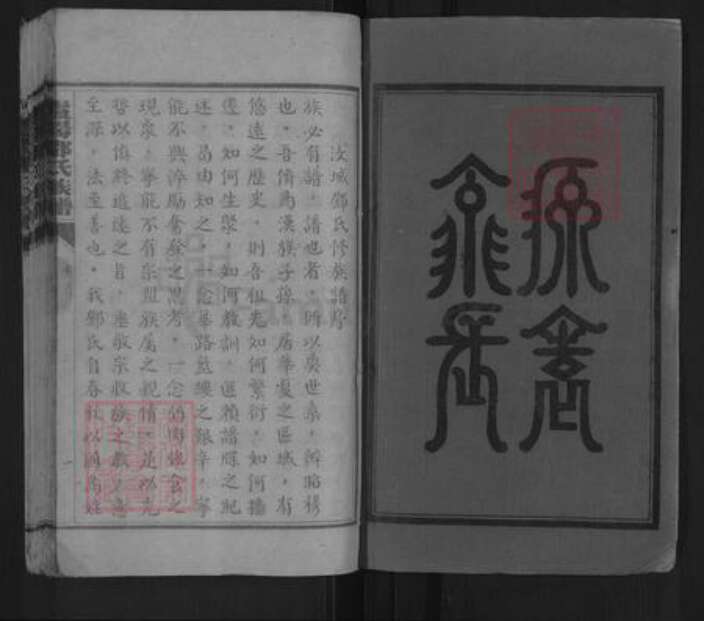 源遠
流長
汝城鄧氏修族譜序
族必有譜，譜也者，所以奠世系，辨昭穆
也。吾儕為漢族子孫，居華夏之區域，有
悠遠之歷史，則吾祖先如何繁衍，如何播
遷，如何生聚，如何教訓，匪賴譜牒之紀
述，曷由知之，一念華路藍縷之艱辛，寧
能不興淬厲奮發之思考，一念
現象，寧能不有宗盟族屬之親情，是以先
哲以慎終追遠之旨，垂敬宗收族之教，意
至深，法至善也。我鄧氏自春秋以國為姓
鄧氏族譜